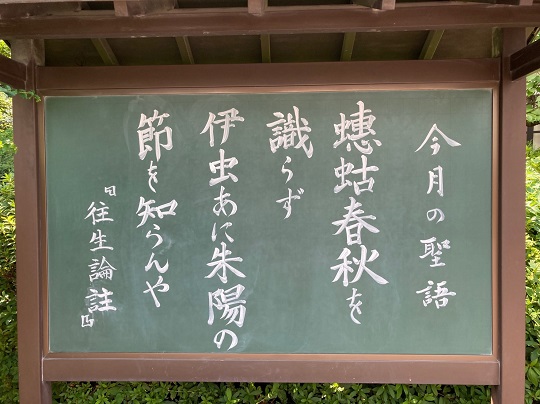 今月の聖語
蟪蛄春秋を
識らず
伊虫あに朱陽の
節を知らんや
『往生論註』